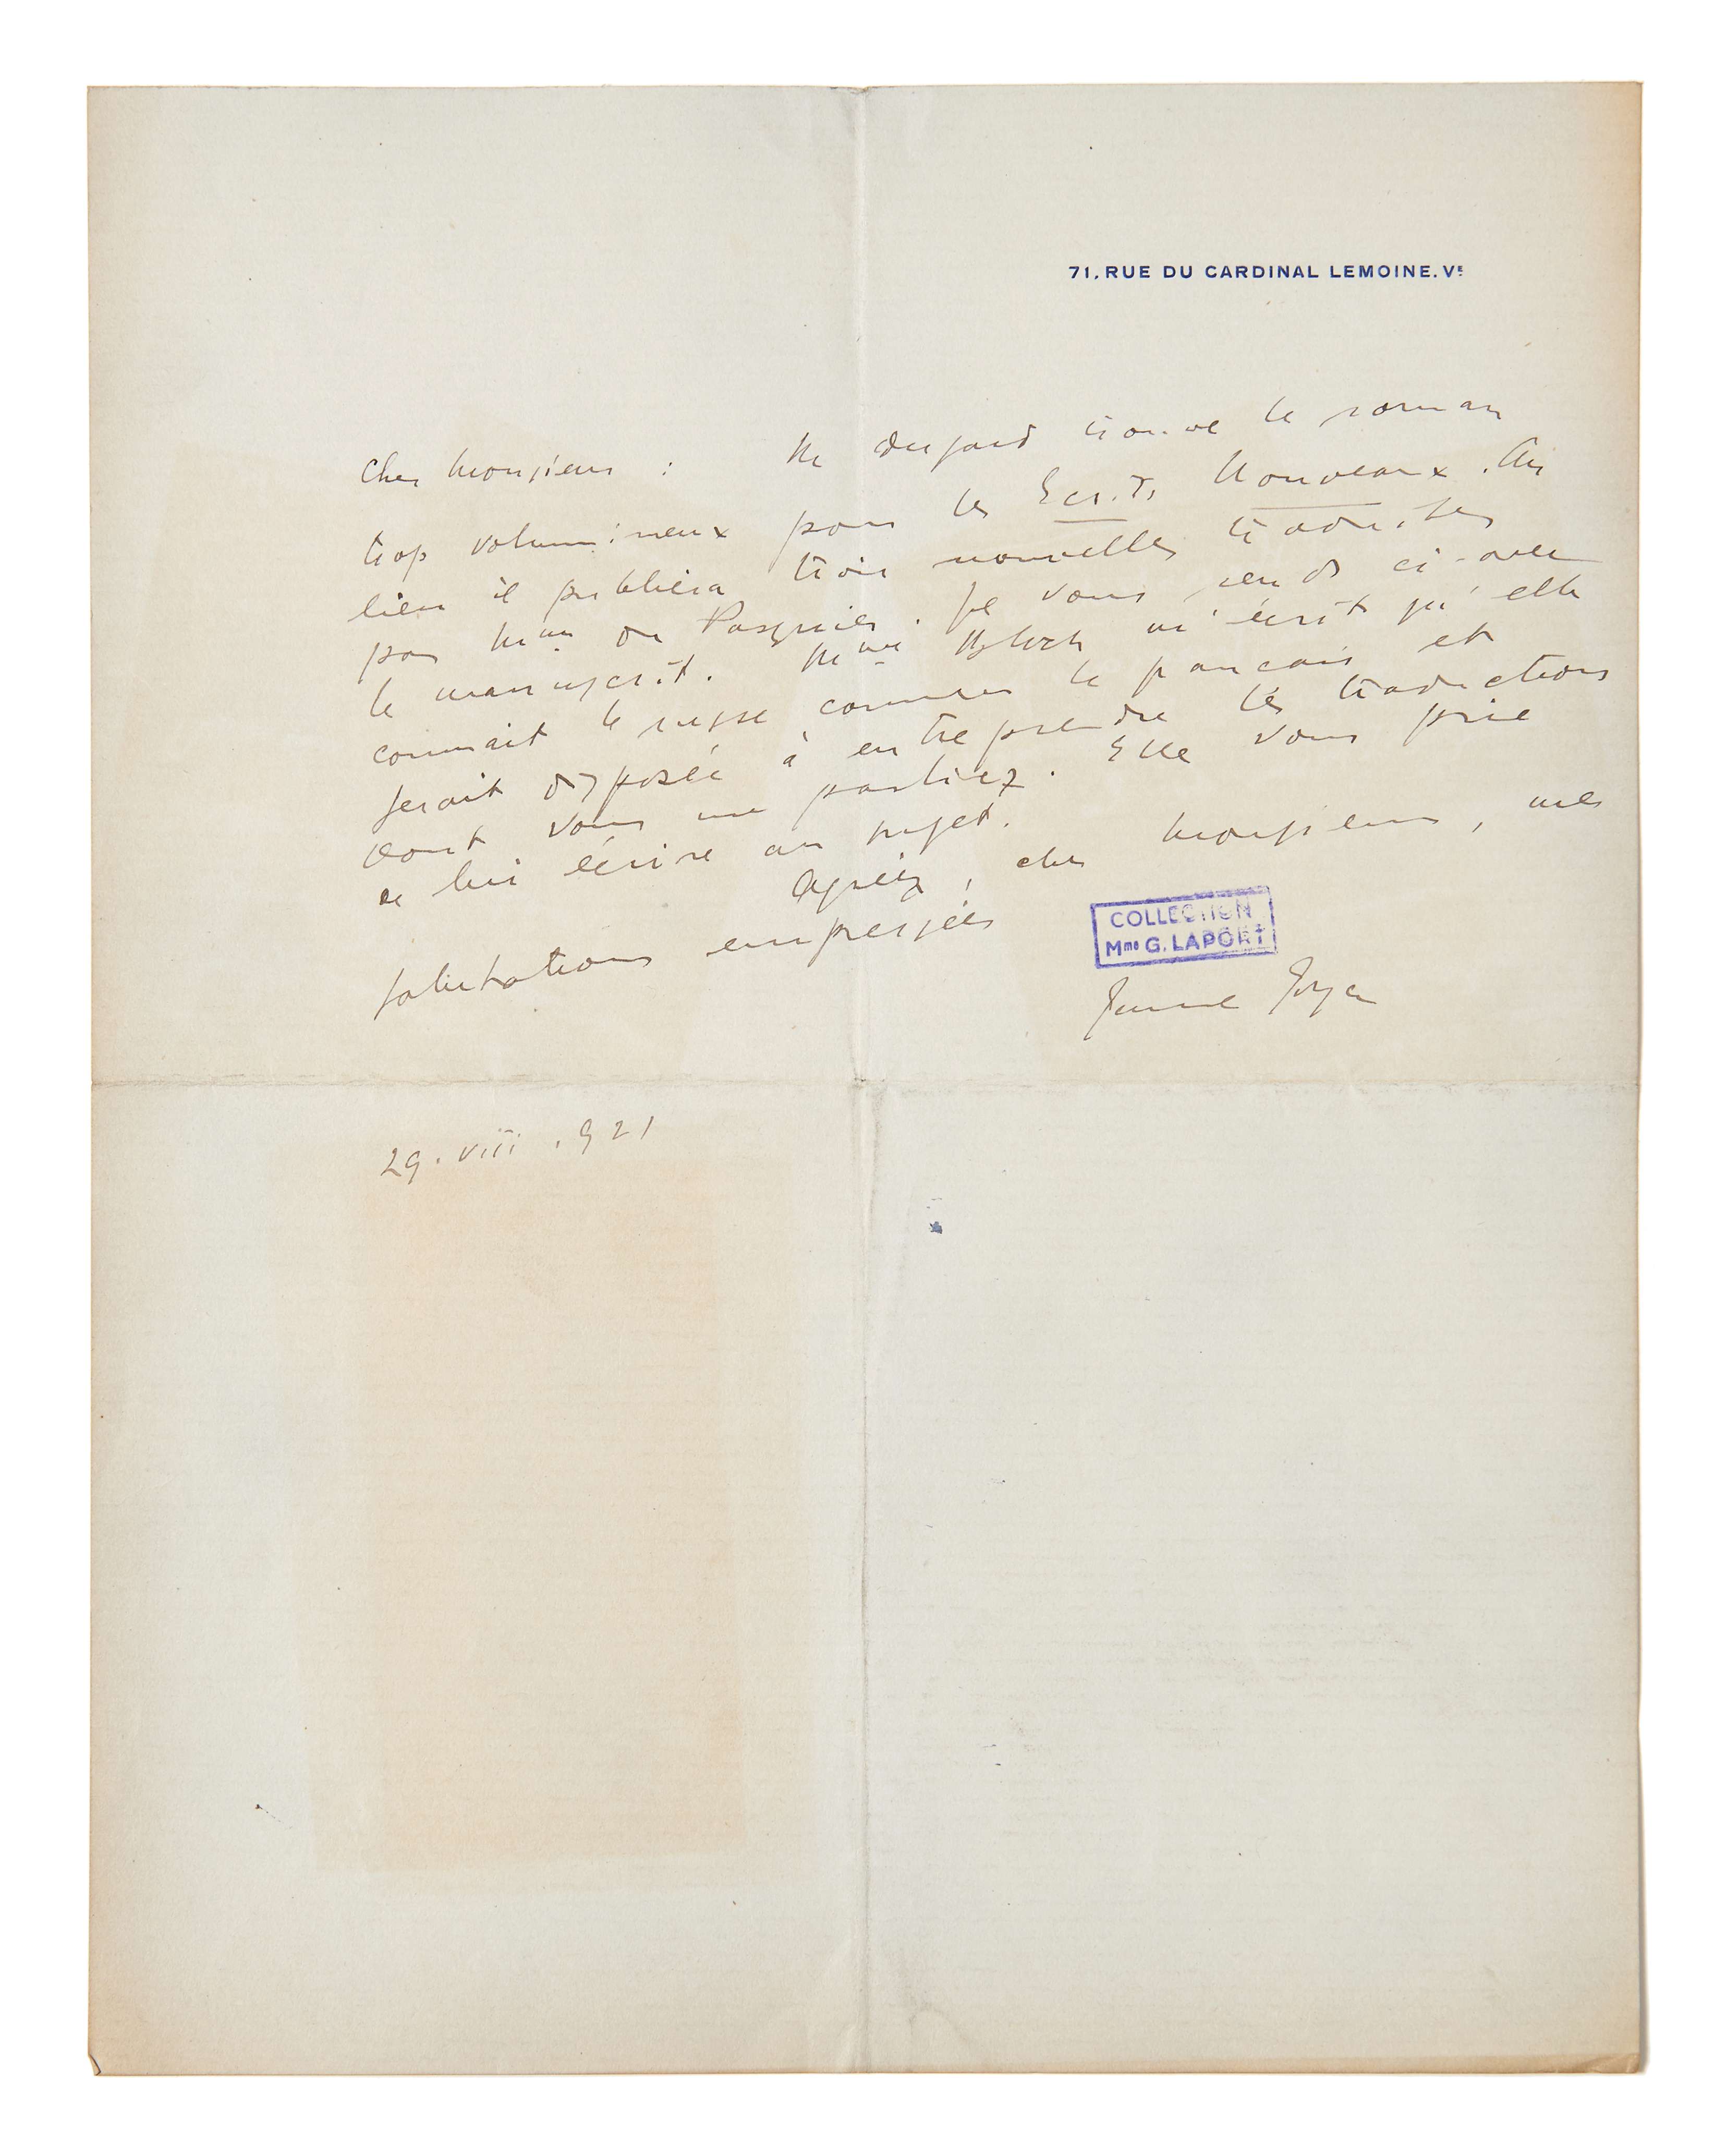 71, RUE DU CARDINAL LEMOINE. Ve
Cher Monsieur : M. Dujard trouve le roman
trop volumineux pour les Écrits Nouveaux. Au
lieu il publiera trois nouvelles traduites
par Mme du Pasquier. Je vous rends ci-avec
le manuscrit. Mme Bloch m'écrit qu'elle
connait le russe comme le francais et
serait disposée à entreprendre les traductions
dont vous me parliez. Elle vous prie
de lui écrire au sujet.
Agréez, cher Monsieur, mes
salutations empressées
COLLECTION
Mme G. LAPORT
James Joyce
29.viii.921